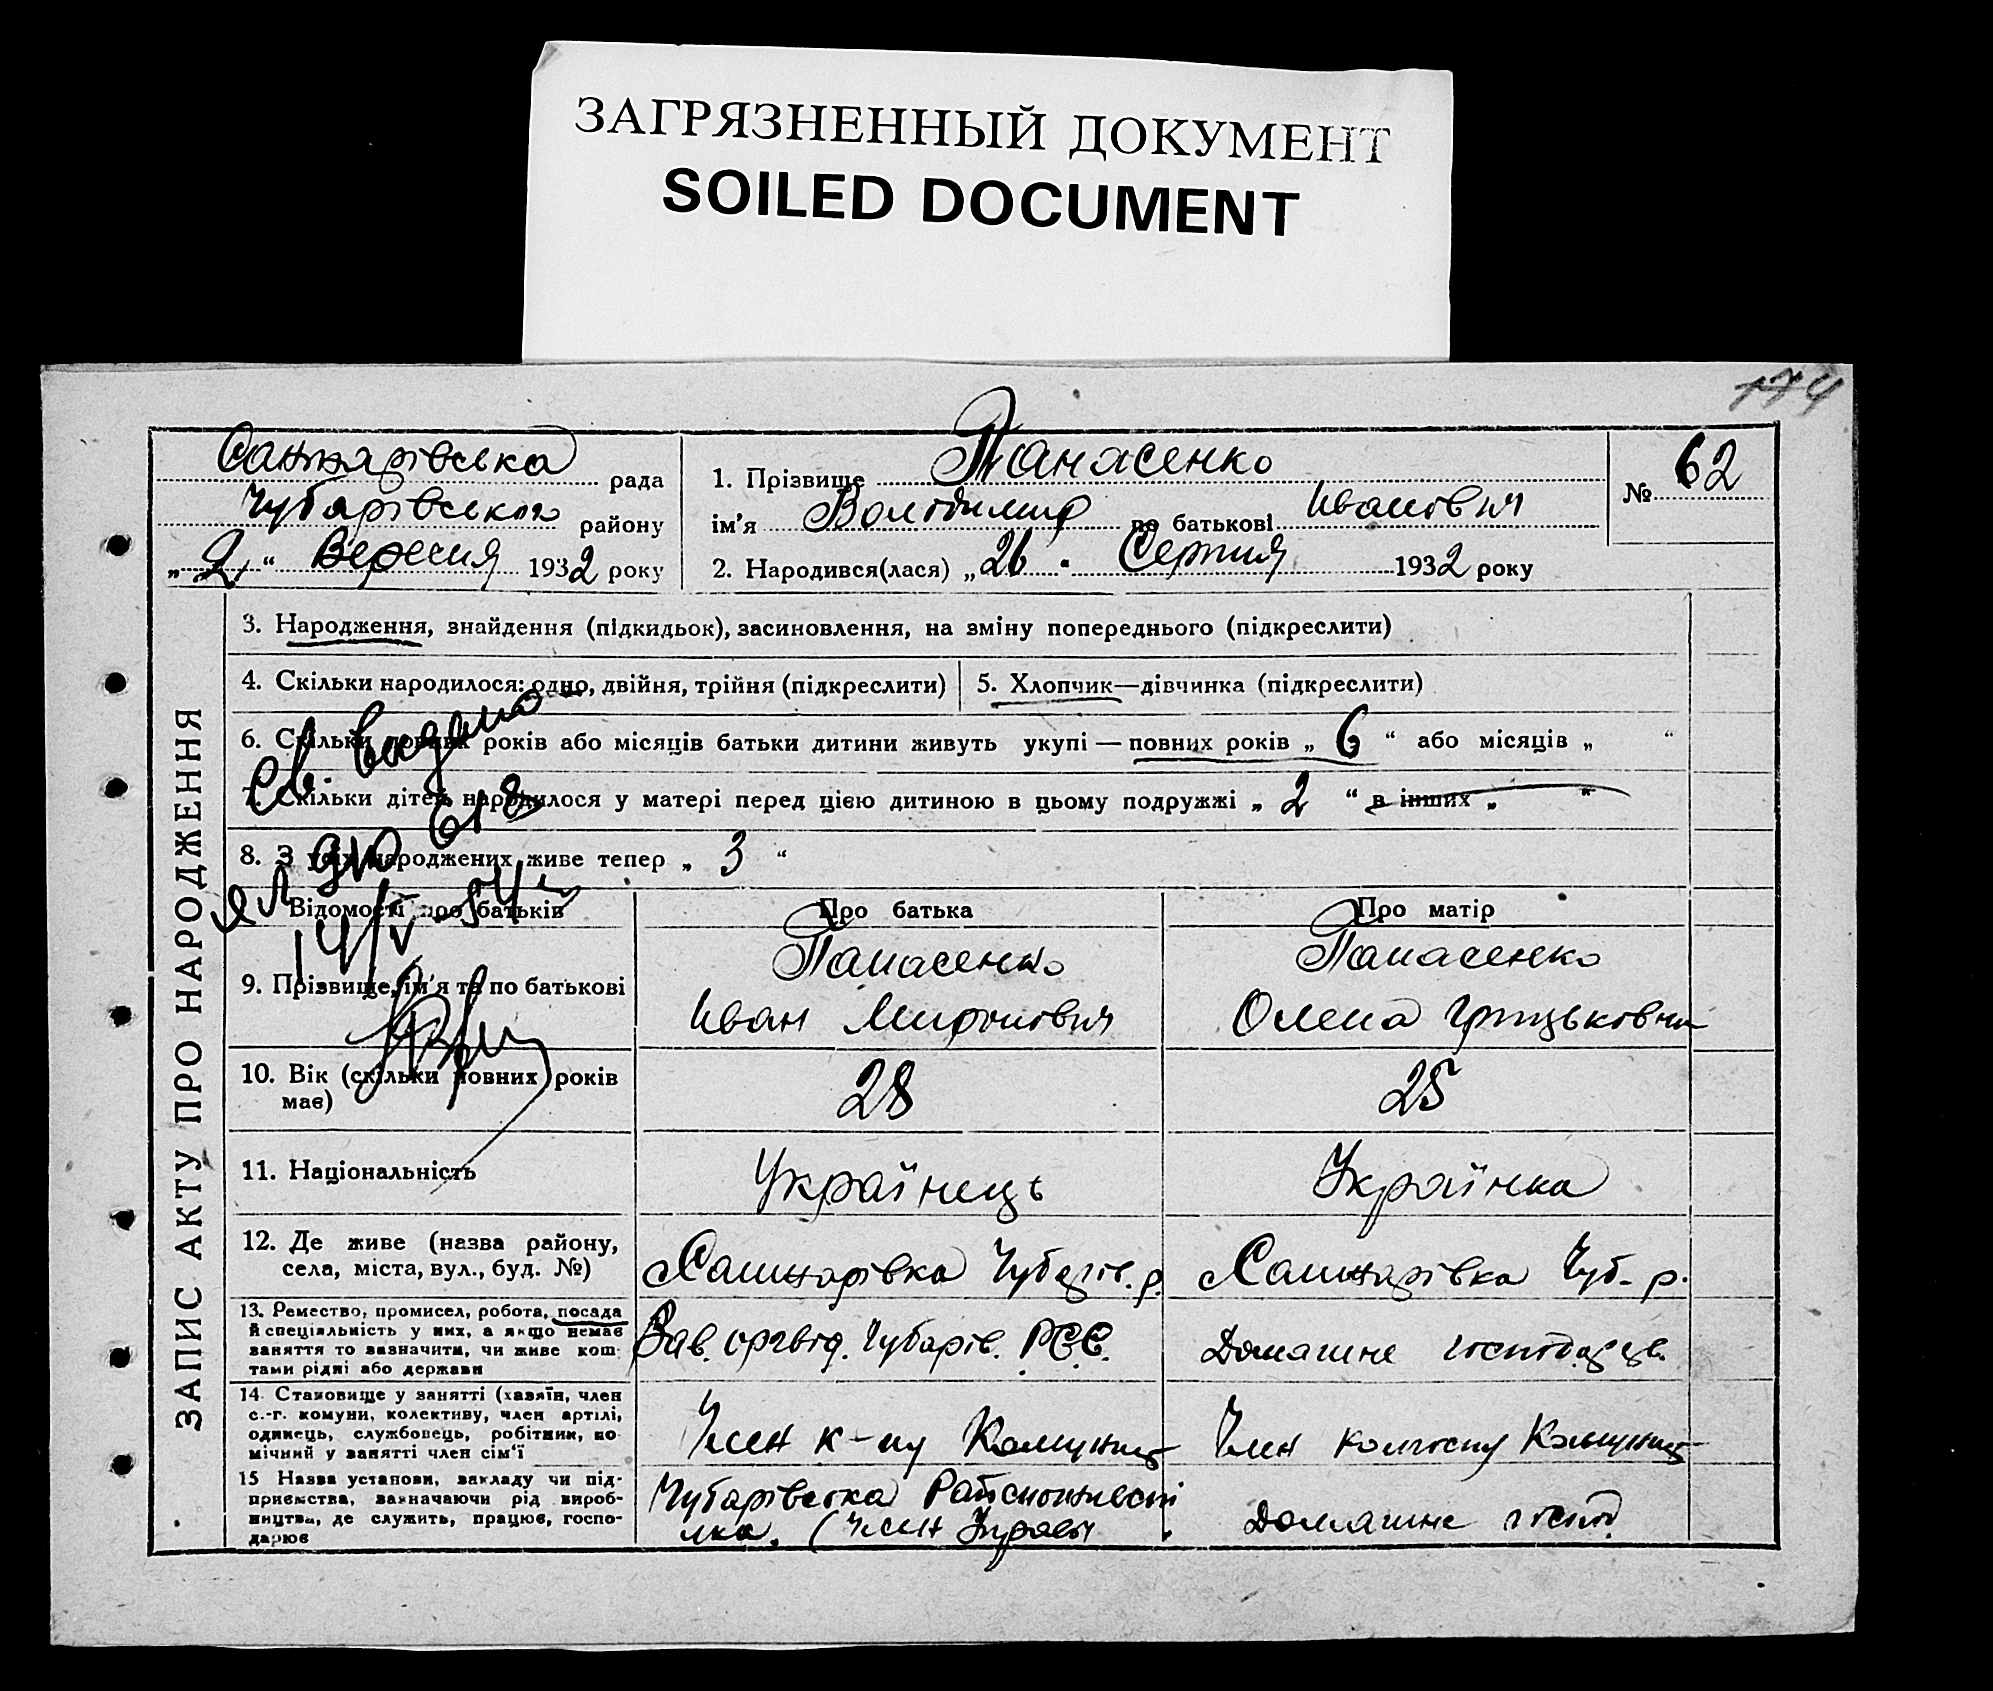 ЗАГРЯЗНЕННЫЙ ДОКУМЕНТ
SOILED DOCUMENT
174
Санжарівська рада
Чубарівського району
„2“ Вересня 1932 року
1. Прізвище Панасенко
ім’я Володимир по батькові Иванович
2. Народився(лася) „26 " Серпня 1932 року
№ 62
ЗАПИС АКТУ ПРО НАРОДЖЕННЯ
3. Народження, знайдення (підкидьок), засиновлення, на зміну попереднього (підкреслити)
4. Скільки народилося: одно, двійня, трійня (підкреслити)
5. Хлопчик—дівчинка (підкреслити)
6. Скільки повних років або місяців батьки дитини живуть укупі — повних років „ 6 “ або місяців „ “
7. Скільки дітей народилося у матері перед цією дитиною в цьому подружжі „ 2 “ в інших „ “
8. З усіх народжених живе тепер „ 3 “
Св. видано
14/V-54
Відомості про батьків
Про батька
Про матір
9. Прізвище, ім’я та по батькові
Панасенко
Иван Миронович
Панасенко
Олена Грицьковна
10. Вік (скільки повних років
має)
28
25
11. Національність
Українець
Українка
12. Де живе (назва району,
села, міста, вул., буд. №)
Санжарівка Чубарів. р.
Санжарівка Чуб. р.
13. Ремество, промисел, робота, посада
й спеціяльність у них, а якщо немає
заняття то зазначити, чи живе кош-
тами рідні або держави
Зав. оргвід. Чубарів. РСС.
Домашне
14. Становище у занятті (хазяїн, член
с.-г. комуни, колективу, член артілі,
одинець, службовець, робітник, по-
мічний у занятті член сім‘ї
Член к-пу Комунист
Член колгоспу Комунист
15 Назва установи, закладу чи під-
приємства, зазначаючи рід вироб-
ництва, де служить, працює, госпо-
дарює
Чубарівська Райспоживспі
лка. (Член Управи
Домашне господ.